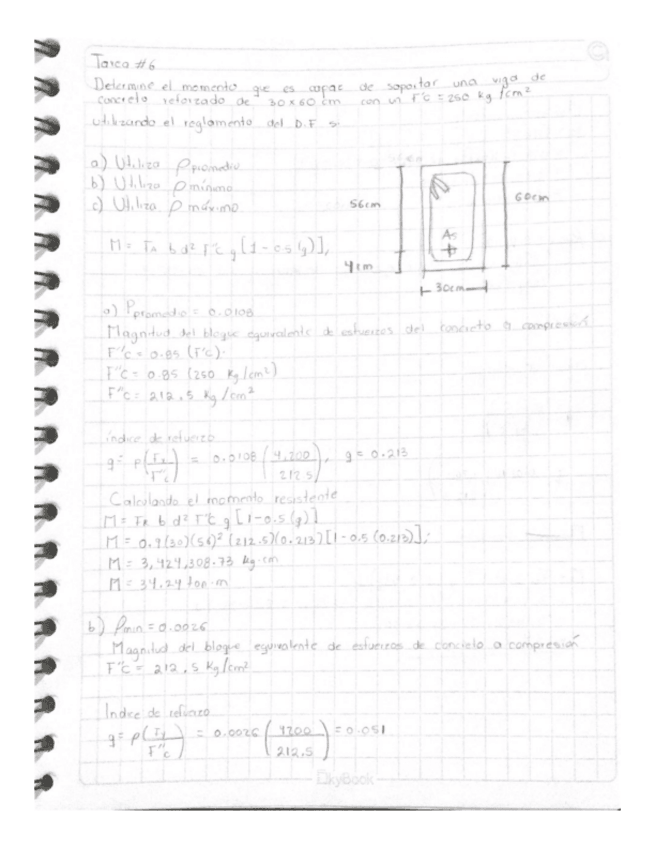 Tarea #6
Determine el momento que es capas de soportar una viga de
concreto reforzado de 30x60 cm con un F'c = 250 kg/cm²
utilizando el reglamento del D.F s.
a) Utiliza ρ promedio
b) Utiliza ρ mínimo
c) Utiliza ρ máximo
M = FR b d² F"c q [1-0.5(q)],
56cm
4cm
60cm
As
30cm
a) Ppromedio = 0.0108
Magnitud del bloque equivalente de esfuerzos del concreto a compresión
F"c = 0.85 (F'c).
F"c = 0.85 (250 Kg/cm²)
F"c = 212.5 Kg/cm²
índice de refuerzo
q = ρ(Fy/F"c) = 0.0108 (4,200/212.5), q = 0.213
Calculando el momento resistente
M = FR b d² F"c q [1-0.5(q)]
M = 0.9(30)(56)² (212.5)(0.213)[1-0.5(0.213)];
M = 3,424,308.73 kg·cm
M = 34.24 ton·m
b) ρmin = 0.0026
Magnitud del bloque equivalente de esfuerzos de concreto a compresión
F"c = 212.5 Kg/cm²
Indice de refuerzo
q = ρ(Fy/F"c) = 0.0026 (4200/212.5) = 0.051
SkyBook